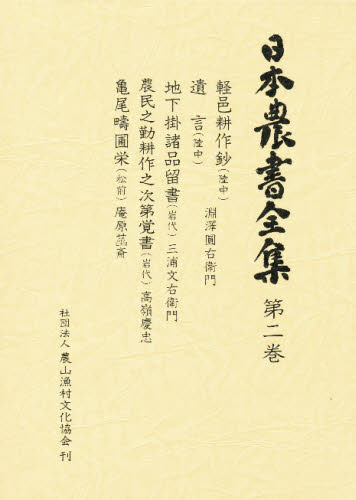 日本農書全集 第二巻
軽邑耕作鈔(陸中) 淵澤圓右衛門
遺言(陸中)
地下掛諸品留書(岩代) 三浦文右衛門
農民之勤耕作之次第覚書(岩代) 高嶺慶忠
亀尾疇圃栄(松前) 庵原菡斎
社団法人 農山漁村文化協会 刊